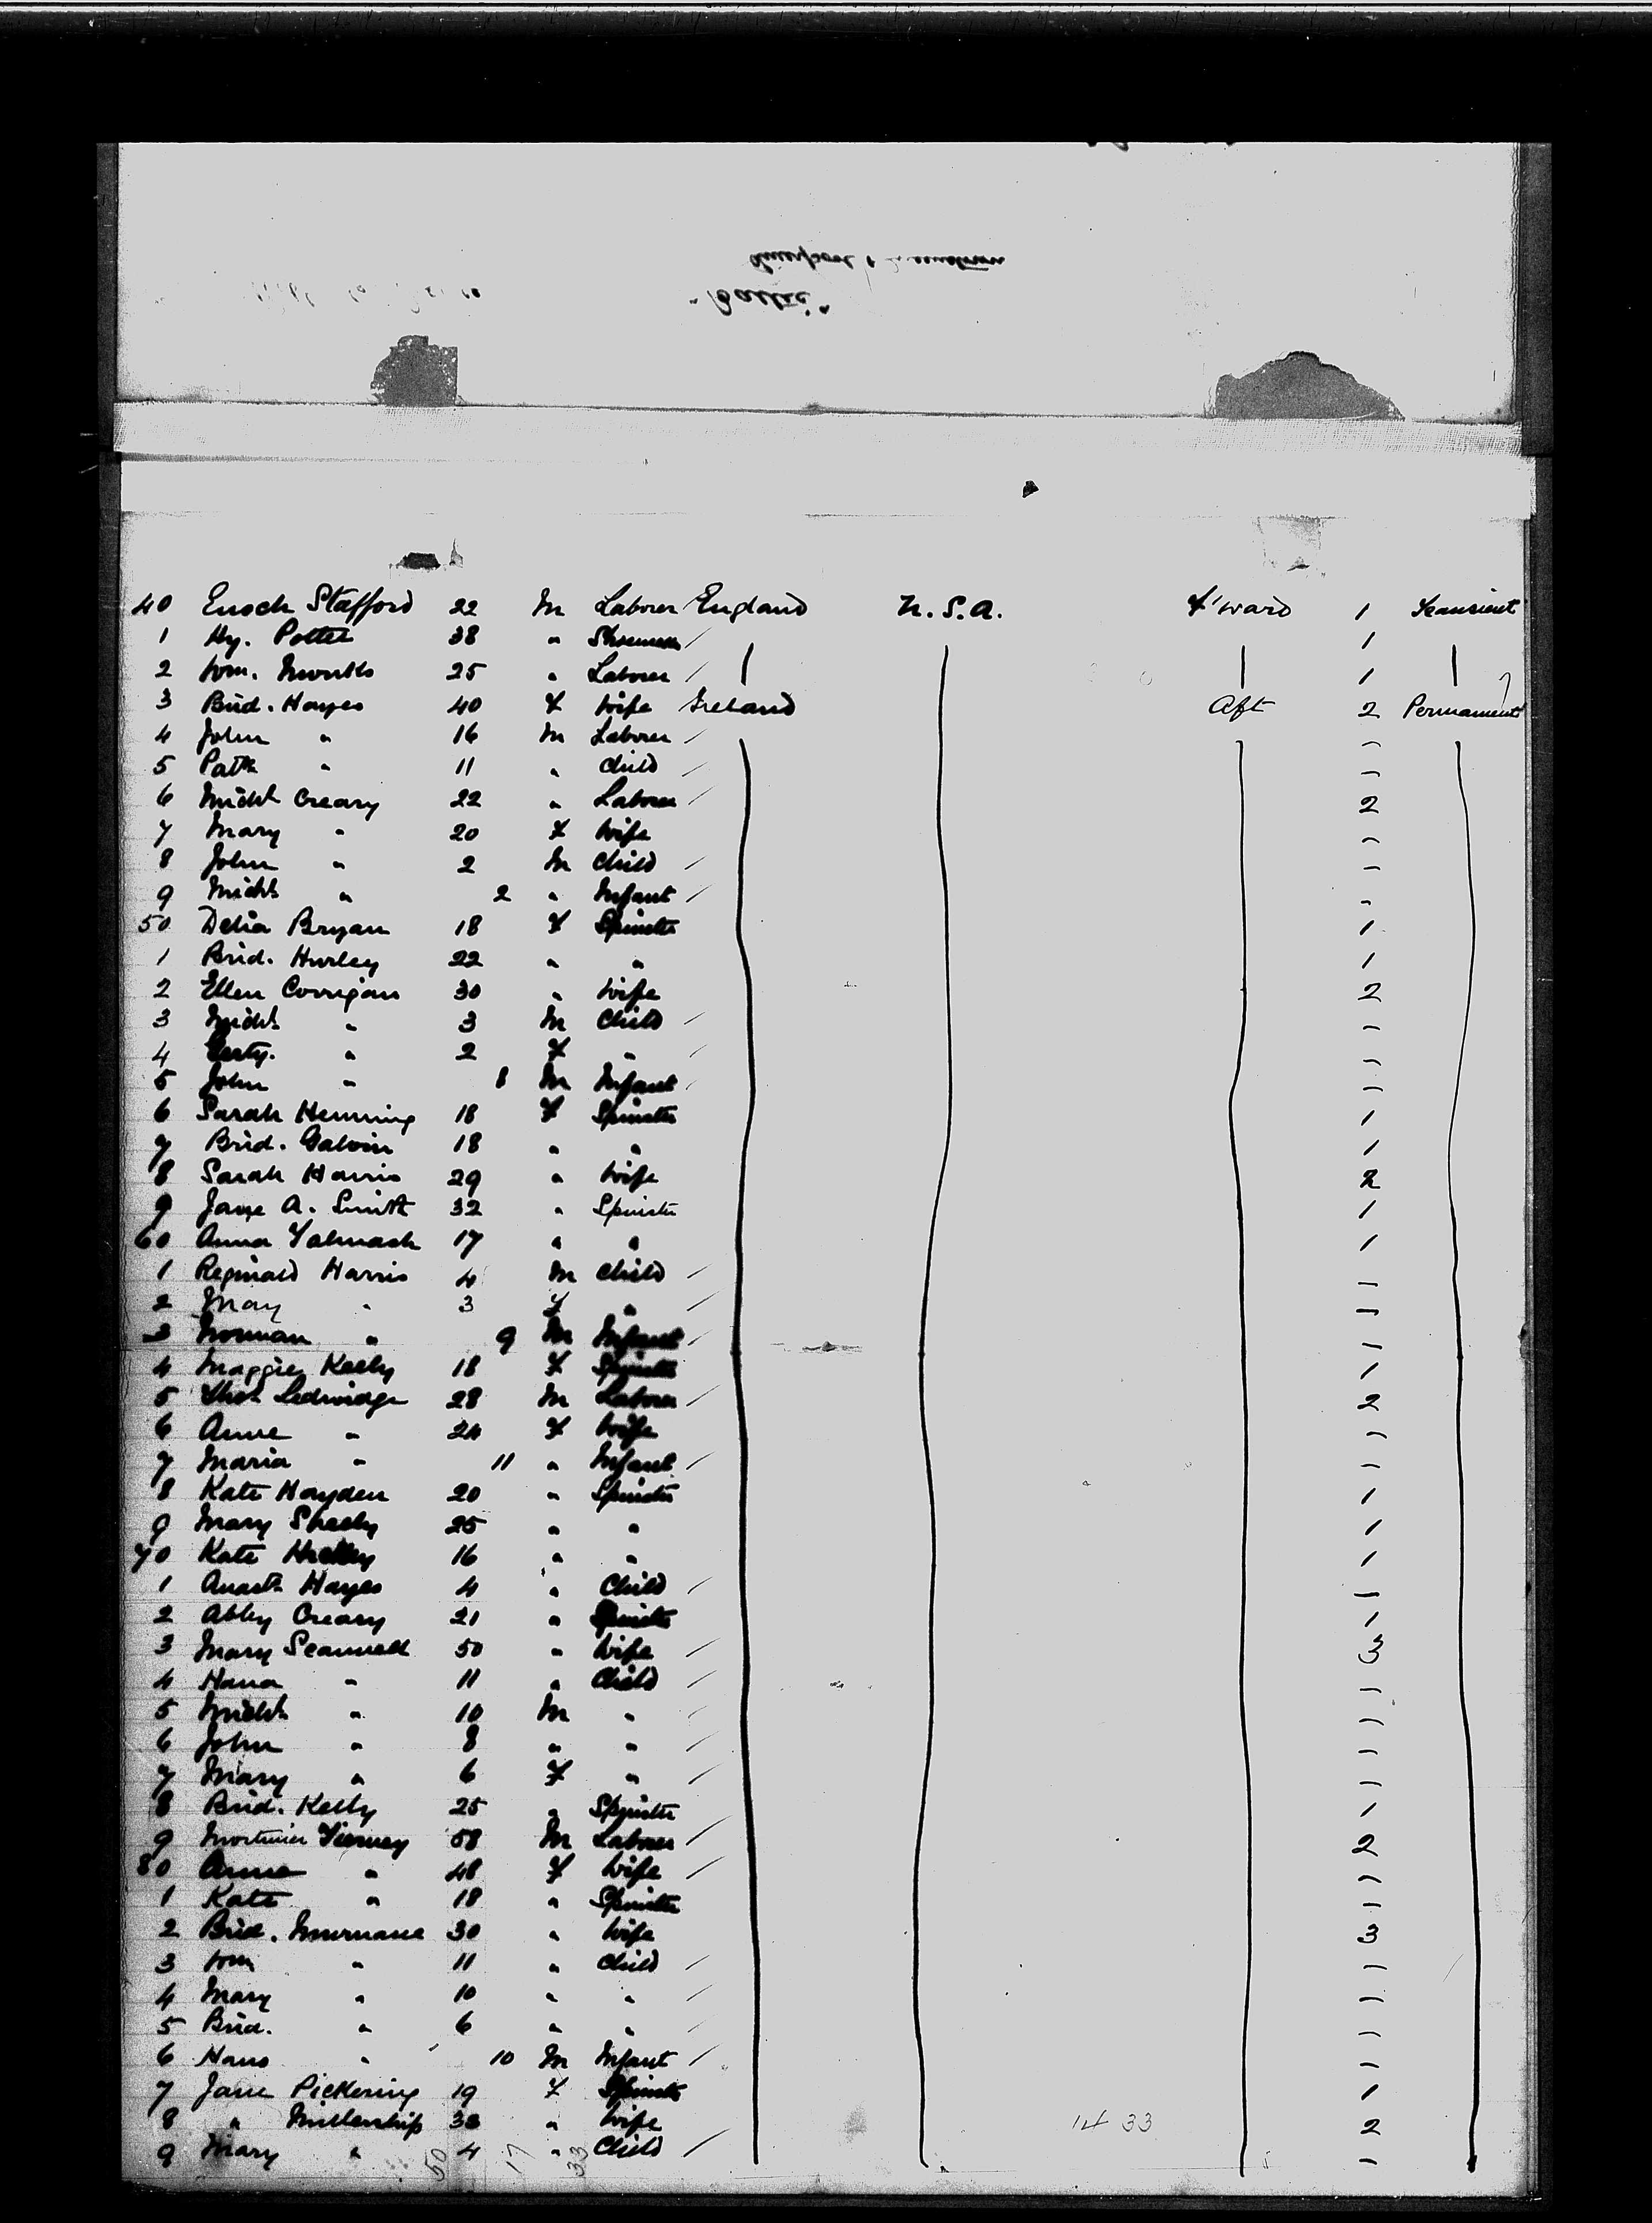 "Baltic"
Liverpool &
40 Enoch Stafford 22 M Laborer England U.S.A. F'ward 1 Transient
1 Hy. Potter 38 " 1
2 Wm. 25 " Laborer 1
3 Brid. Hayes 40 F Wife Ireland Aft 2 Permanent
4 John " 16 M Laborer -
5 Patk " 11 " Child -
6 Michl Creary 22 " Laborer 2
7 Mary " 20 F Wife -
8 John " 2 M Child -
9 Michl " 2 " Infant -
50 Delia Bryan 18 F Spinster 1
1 Brid. Hurley 22 " " 1
2 Ellen Corrigan 30 " Wife 2
3 Michl " 3 M Child -
4 " 2 F " -
5 John " 8 M Infant -
6 Sarah Henning 18 F Spinster 1
7 Brid. Galvin 18 " " 1
8 Sarah Harris 29 " Wife 2
9 Jane A. Smith 32 " Spinster 1
60 Anna 17 " " 1
1 Reginald Harris 4 M Child -
2 May " 3 F " -
3 Norman " 9 M Infant -
4 Maggie Kelly 18 F Spinster 1
5 Thos Ledwidge 28 M Laborer 2
6 Anne " 24 F Wife -
7 Maria " 11 " Infant -
8 Kate Hayden 20 " Spinster 1
9 Mary Sheehy 25 " " 1
70 Kate 16 " " 1
1 Anasta Hayes 4 " Child -
2 Abby Creary 21 " Spinster 1
3 Mary Scannell 50 " Wife 3
4 Hana " 11 " Child -
5 Michl " 10 M " -
6 John " 8 " " -
7 Mary " 6 F " -
8 Brid. Kelly 25 " Spinster 1
9 Mortimer Tierney 58 M Laborer 2
80 Anne " 48 F Wife -
1 Kate " 18 " Spinster -
2 Brid. Murnane 30 " Wife 3
3 Wm " 11 " Child -
4 Mary " 10 " " -
5 Brid. " 6 " " -
6 Hans " 10 M Infant -
7 Jane Pickering 19 F Spinster 1
8 " Millership 30 " Wife 14 33 2
9 Mary " 4 " Child -
50 17 33